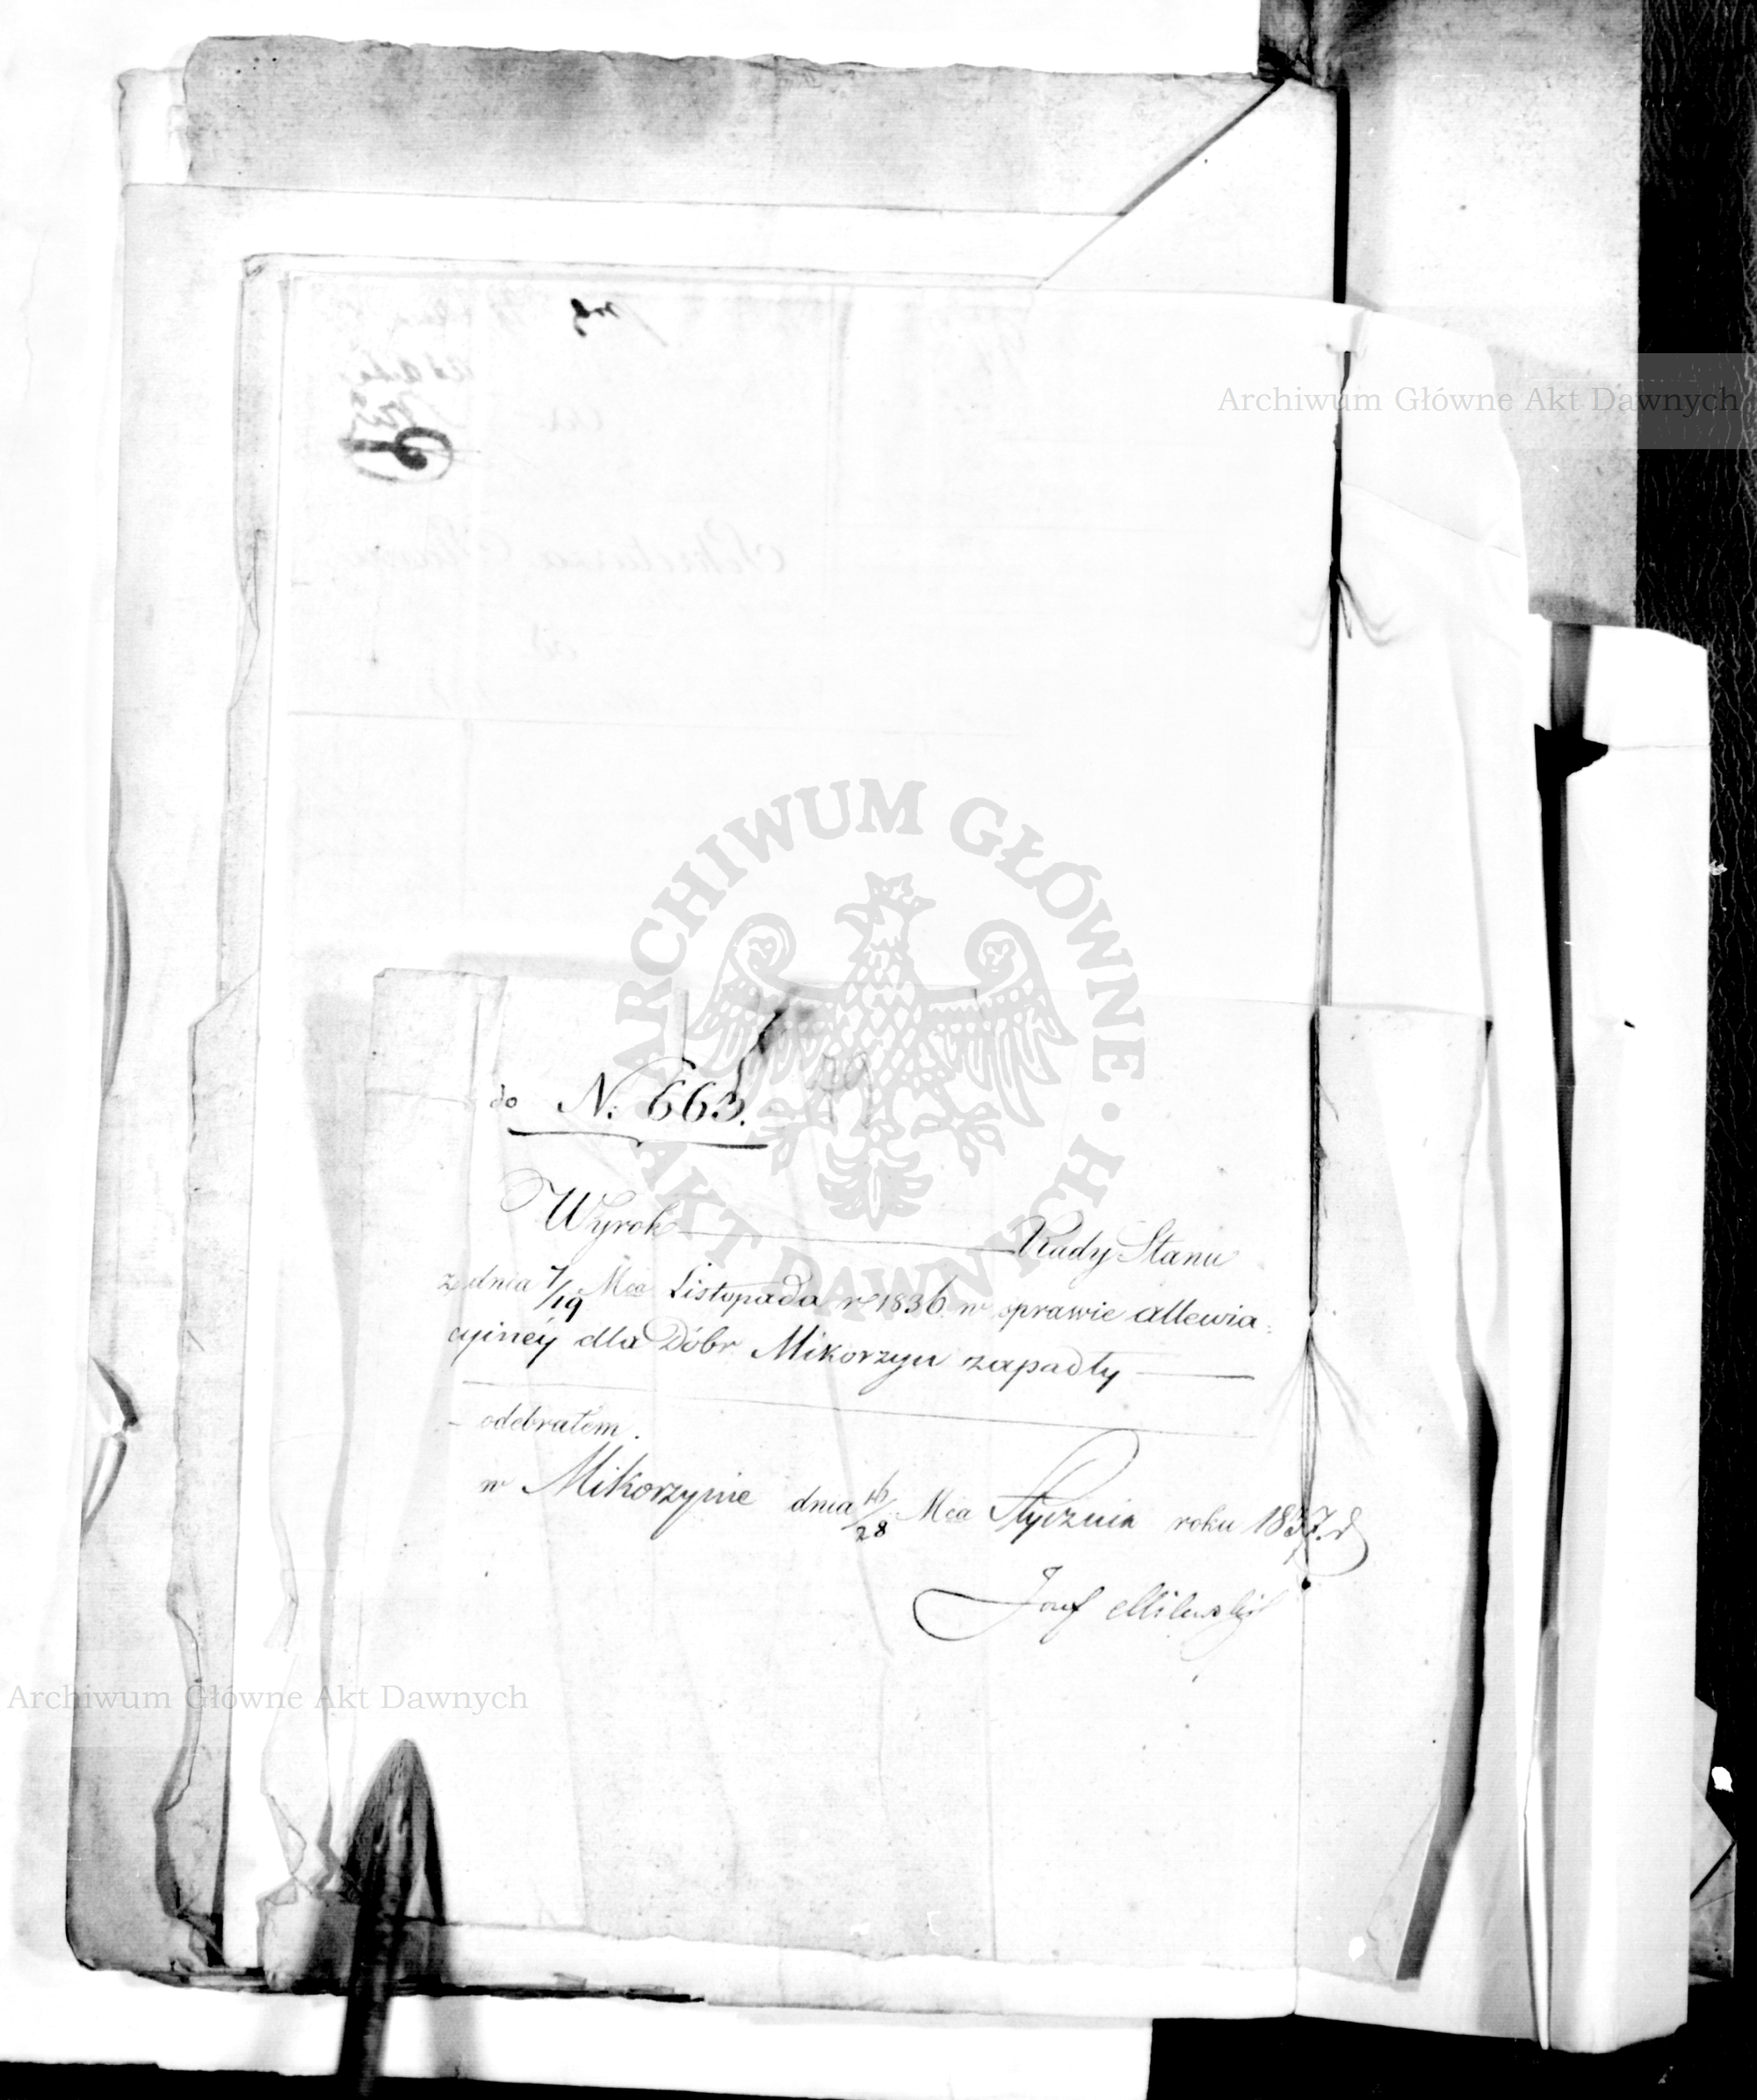 Archiwum Główne Akt Dawnych
ARCHIWUM GŁÓWNE AKT DAWNYCH
79
do N. 663.
Wyrok Rady Stanu
z dnia 7/19 Mca Listopada r 1836 w sprawie allewia-
cyineÿ dla Dóbr Mikorzyn zapadły
odebrałem.
w Mikorzynie dnia 16/28 Mca Stycznia roku 1837. r
Jozef Milewski
Archiwum Główne Akt Dawnych